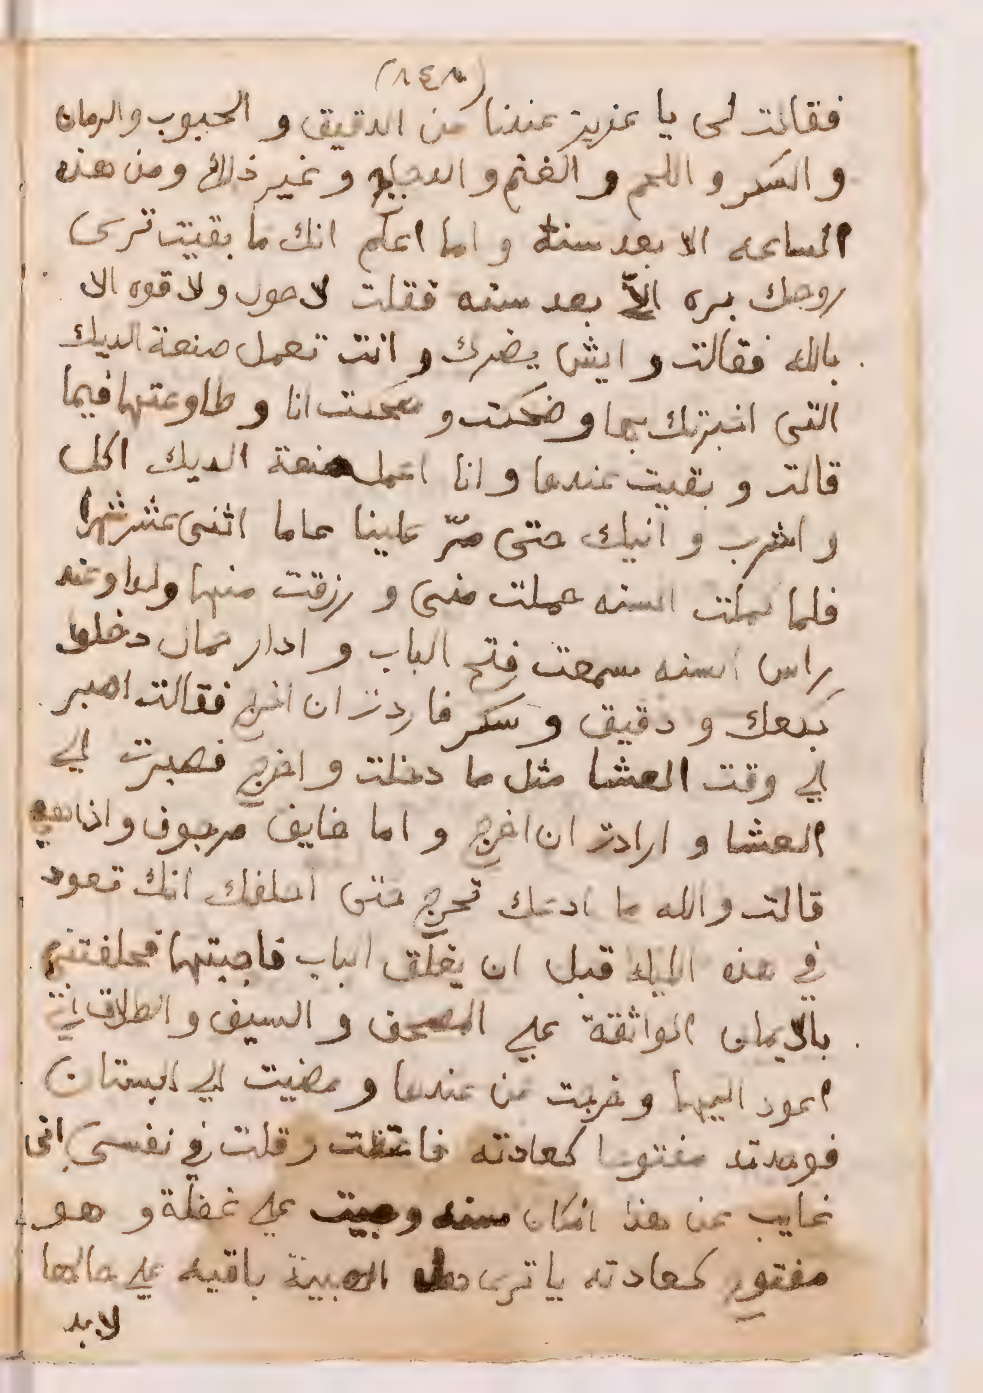 (٨٤٨)
فقالت لى يا عزيز عندنا من الدقيق و الحبوب والرمان
و السكر و اللحم و الغنم و الدجاج و غير ذلك ومن هذه
الساعه الا بعد سنة و اما اعلم انك ما بقيت ترى
روحك بره الّا بعد سنه فقلت لا حول ولا قوه الا
بالله فقالت و ايش يضرك و انت تعمل صنعة الديك
التى اخبرتك بها و ضحكت و ضحكت انا و طاوعتها فيما
قالت و بقيت عندها و انا اعمل صنعة الديك اكل
و اشرب و انيك حتى مرّ علينا عاما اثنى عشر شهرا
فلما كملت السنه حملت منى و رزقت منها ولدا وعند
راس السنه سمعت فتح الباب و اذا رجال دخلوا
بكعك و دقيق و سكر فاردت ان اخرج فقالت اصبر
الي وقت العشا مثل ما دخلت و اخرج فصبرت الي
العشا و ارادت ان اخرج و اما خايف مرجوف واذا هي
قالت والله ما ادعك تخرج حتى احلفك انك تعود
في هذه الليله قبل ان يغلق الباب فاجبتها فحلفتني
بالايمان الواثقة علي المصحف و السيف و الطلاق اني
اعود اليها و خرجت من عندها و مضيت الي البستان
فوجدته مفتوحا كعادته فاغتظت و قلت في نفسي انى
غايب عن هذا المكان سنه وجيت علي غفلة و هو
مفتوح كعادته يا ترى هل الصبية باقيه علي حالها
لا بد